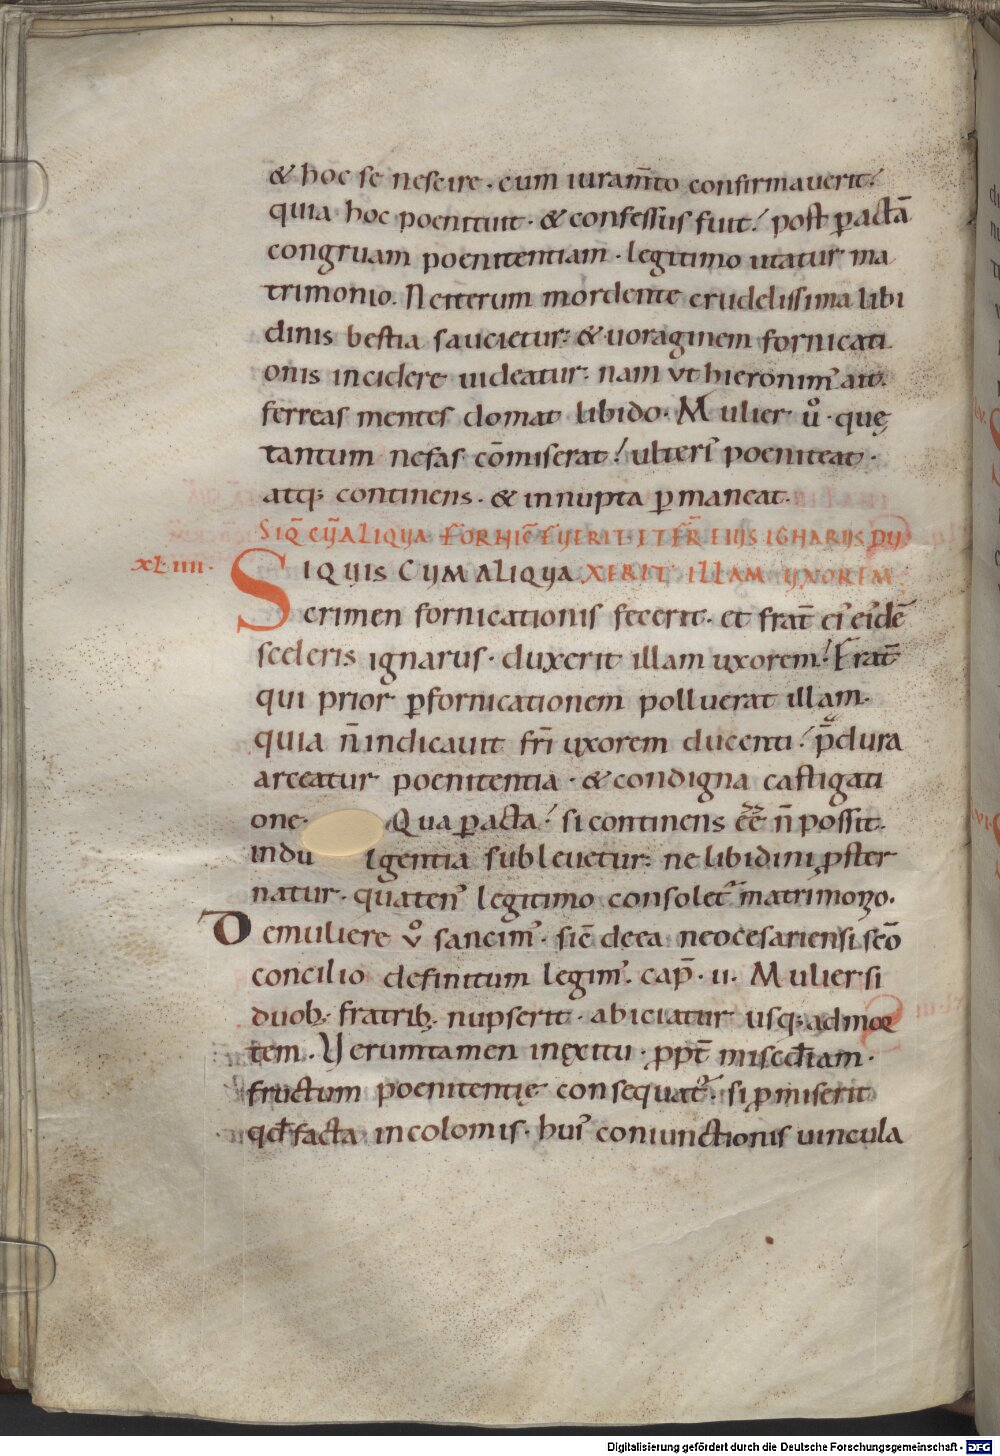 & hoc se nescire · cum iuram̅to confirmauerit!
quia hoc poenituit · & confessus fuit! post ꝑactā
congruam poenitentiam · legitimo utatur ma
trimonio. Ne iterum mordente crudelissima libi
dinis bestia saucietur: & uoraginem fornicati
onis incidere uideatur· nam ut hieronim᾽ ait·
ferreas mentes domat libido· Mulier ů· quę
tantum nefas cōmiserat! ulteri᾽ poeniteat·
atq; continens · & innupta ꝑmaneat·
SI Q̄ CU̅ ALIQUA FORNIC̅ FUERIT· ET FR̅ EIUS IGNARUS DU
XLIIII·
SI QUIS CUM ALIQUA XERIT ILLAM UXOREM
crimen fornicationis fecerit· et frat̅ ei᾽ ei᾽dē
sceleris ignarus · duxerit illam uxorem! Frat̅
qui prior ꝑfornicationem polluerat illam·
quia n̅ indicauit fr̅i uxorem ducenti! p̅ dura
arceatur poenitentia · & condigna castigati
one· Qua ꝑacta! si continens ē̅ē n̅ possit·
indu lgentia subleuetur: ne libidini ꝓster
natur· quaten᾽ legitimo consolet᾽ matrimonio.
De muliere v̊ sancim᾽· sic̅ de ea neocesariensi sc̅o
concilio definitum legim᾽. cap̅ · ii· Mulier si
duob; fratrib; nupserit · abiciatur usq; ad mor
tem. Uerumtamen in exitu · ꝓpt̅ misc̅diam·
fructum poenitentię consequat᾽· si ꝓmiserit
qd̅ facta incolomis · hui᾽ coniunctionis uincula
Digitalisierung gefördert durch die Deutsche Forschungsgemeinschaft - DFG